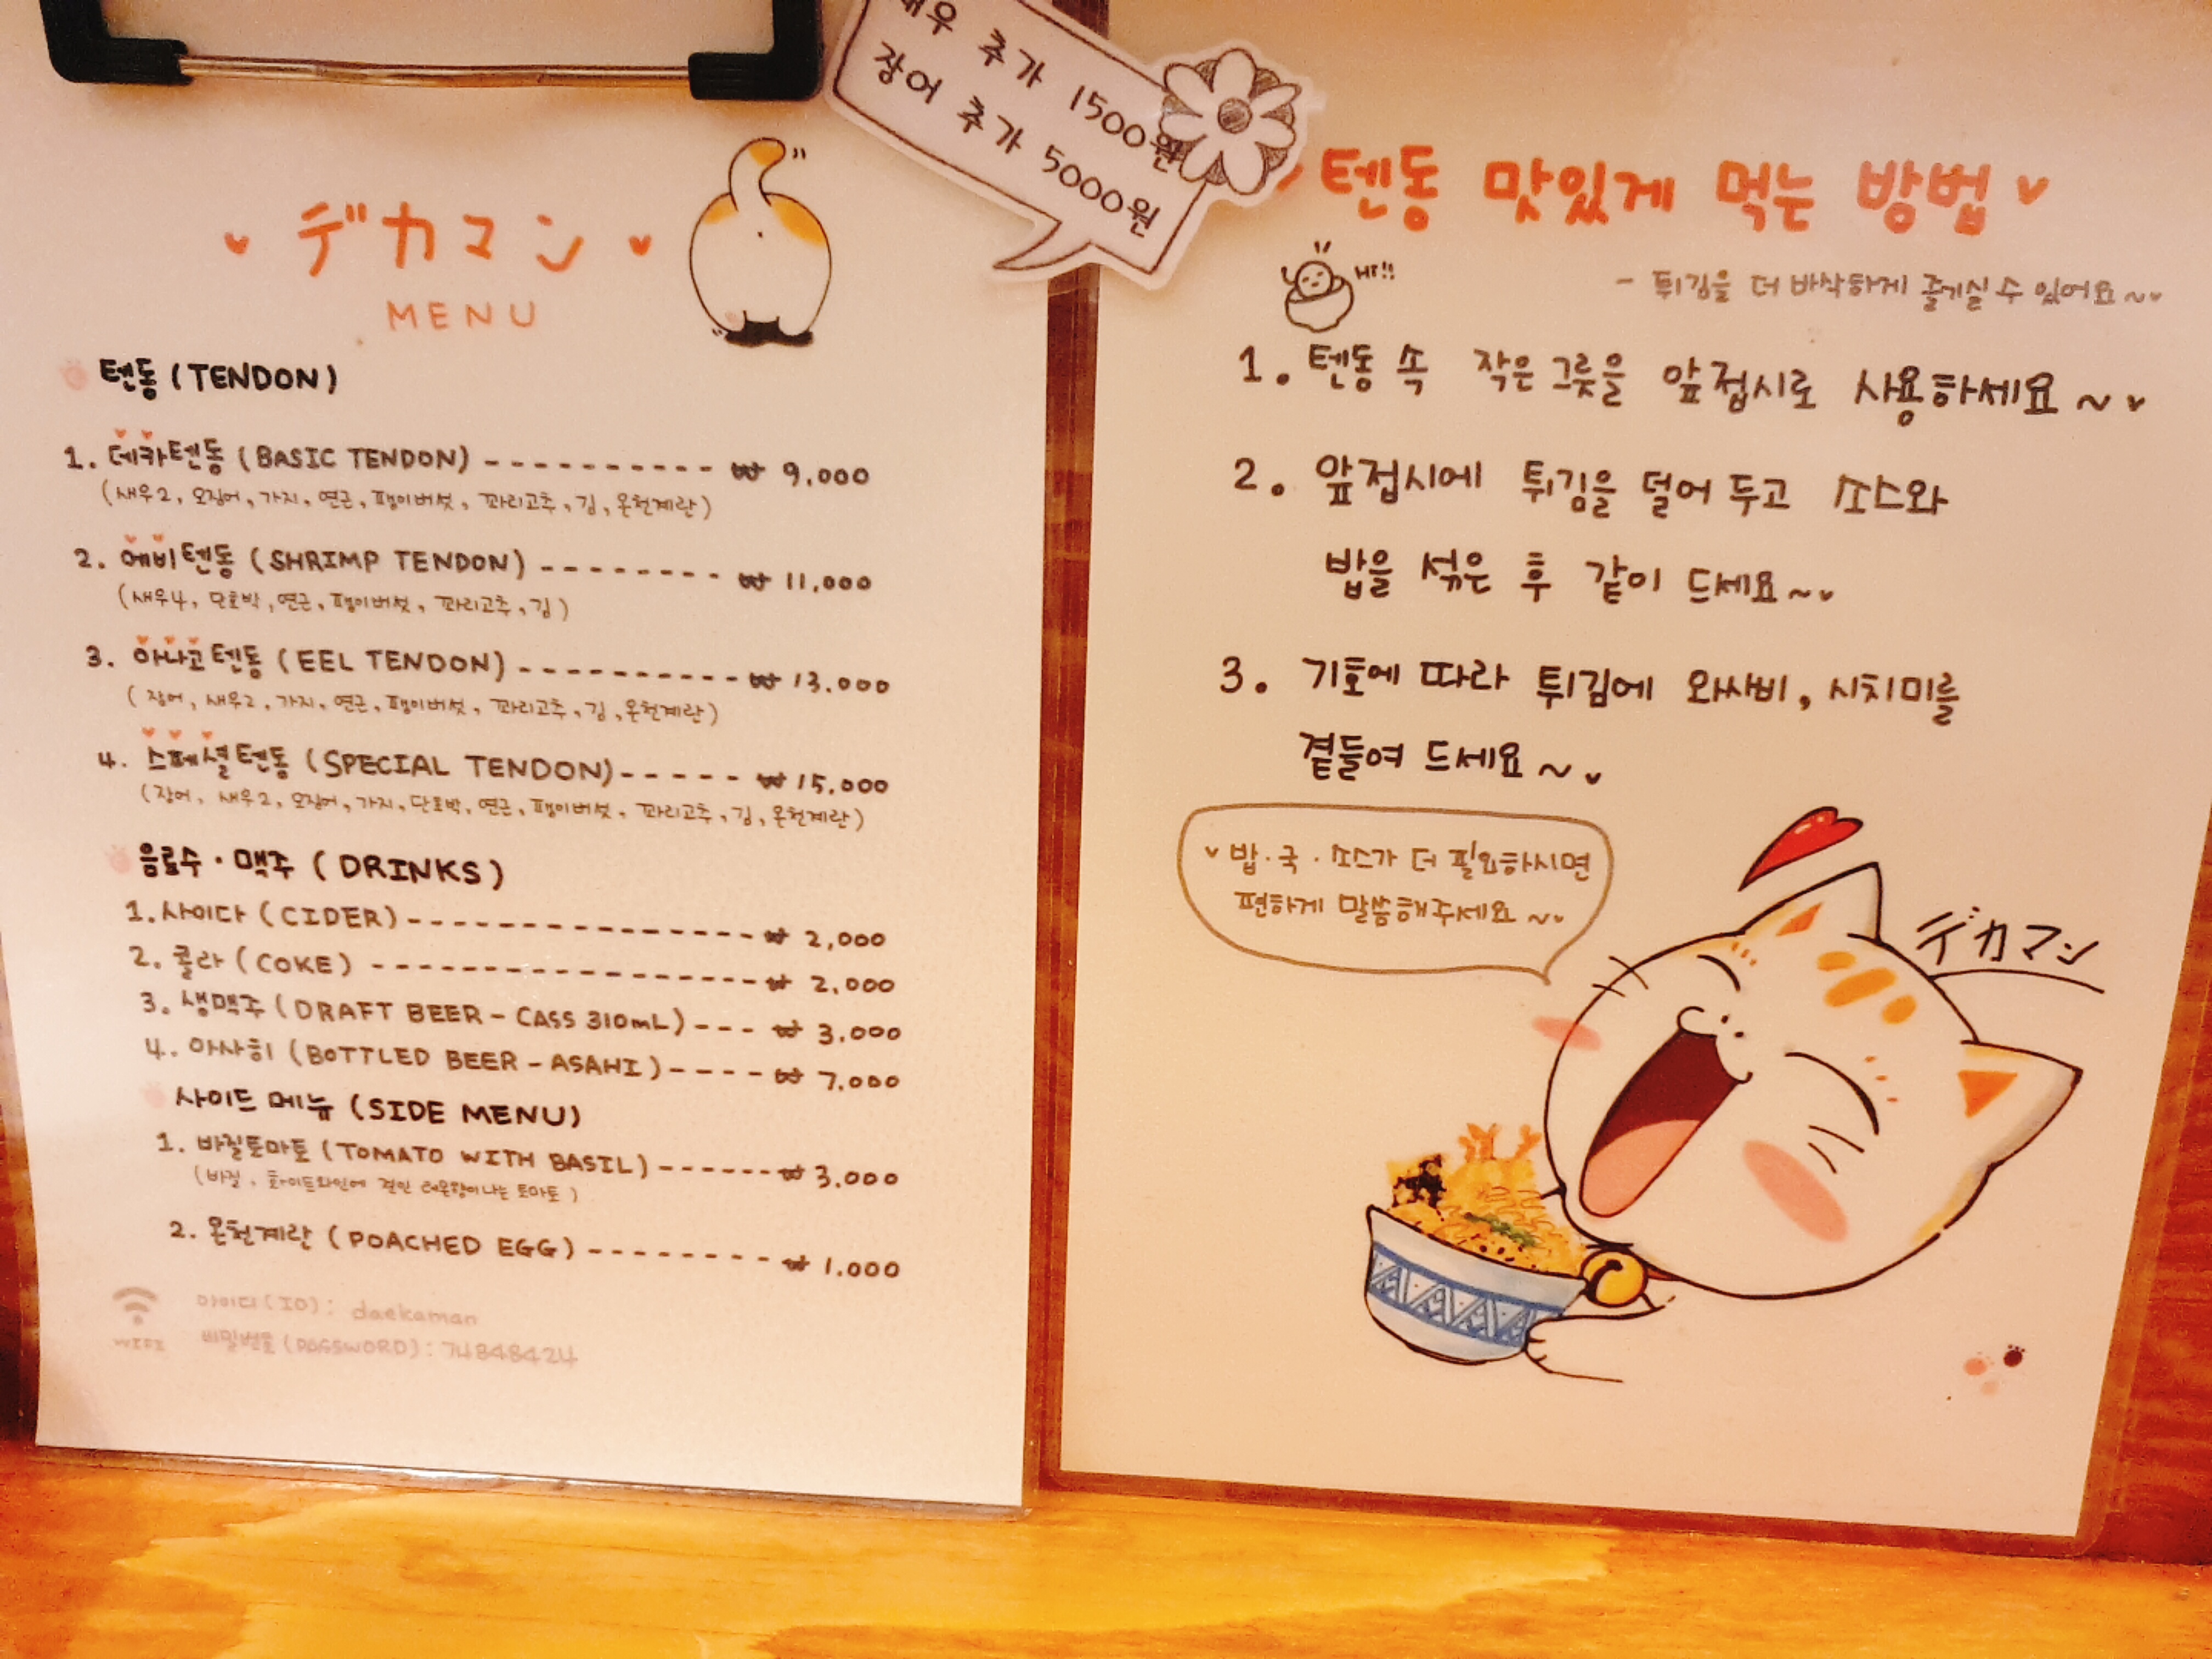 デカマン
MENU
텐동 (TENDON)
1. 데카텐동 (BASIC TENDON) ----------- ₩ 9,000
(새우2, 오징어, 가지, 연근, 팽이버섯, 꽈리고추, 김, 온천계란)
2. 에비텐동 (SHRIMP TENDON) -------- ₩ 11,000
(새우4, 단호박, 연근, 팽이버섯, 꽈리고추, 김)
3. 아나고텐동 (EEL TENDON) ----------- ₩ 13.000
(장어, 새우2, 가지, 연근, 팽이버섯, 꽈리고추, 김, 온천계란)
4. 스페셜텐동 (SPECIAL TENDON) ----- ₩ 15,000
(장어, 새우2, 오징어, 가지, 단호박, 연근, 팽이버섯, 꽈리고추, 김, 온천계란)
음료수 · 맥주 (DRINKS)
1. 사이다 (CIDER) ---------------- ₩ 2,000
2. 콜라 (COKE) ------------------ ₩ 2,000
3. 생맥주 (DRAFT BEER - CASS 310mL) --- ₩ 3.000
4. 아사히 (BOTTLED BEER - ASAHI) ---- ₩ 7.000
사이드 메뉴 (SIDE MENU)
1. 바질토마토 (TOMATO WITH BASIL) ------ ₩ 3,000
(바질, 화이트와인에 절인 레몬향이나는 토마토)
2. 온천계란 (POACHED EGG) -------- ₩ 1.000
WIFI
아이디 (ID) : daekaman
비밀번호 (PASSWORD) : 74848424
새우 추가 1500원
장어 추가 5000원
텐동 맛있게 먹는 방법
HI!!
- 튀김을 더 바삭하게 즐기실 수 있어요~
1. 텐동 속 작은 그릇을 앞접시로 사용하세요~
2. 앞접시에 튀김을 덜어 두고 소스와
밥을 섞은 후 같이 드세요~
3. 기호에 따라 튀김에 와사비, 시치미를
곁들여 드세요~
밥 · 국 · 소스가 더 필요하시면
편하게 말씀해주세요~
デカマン